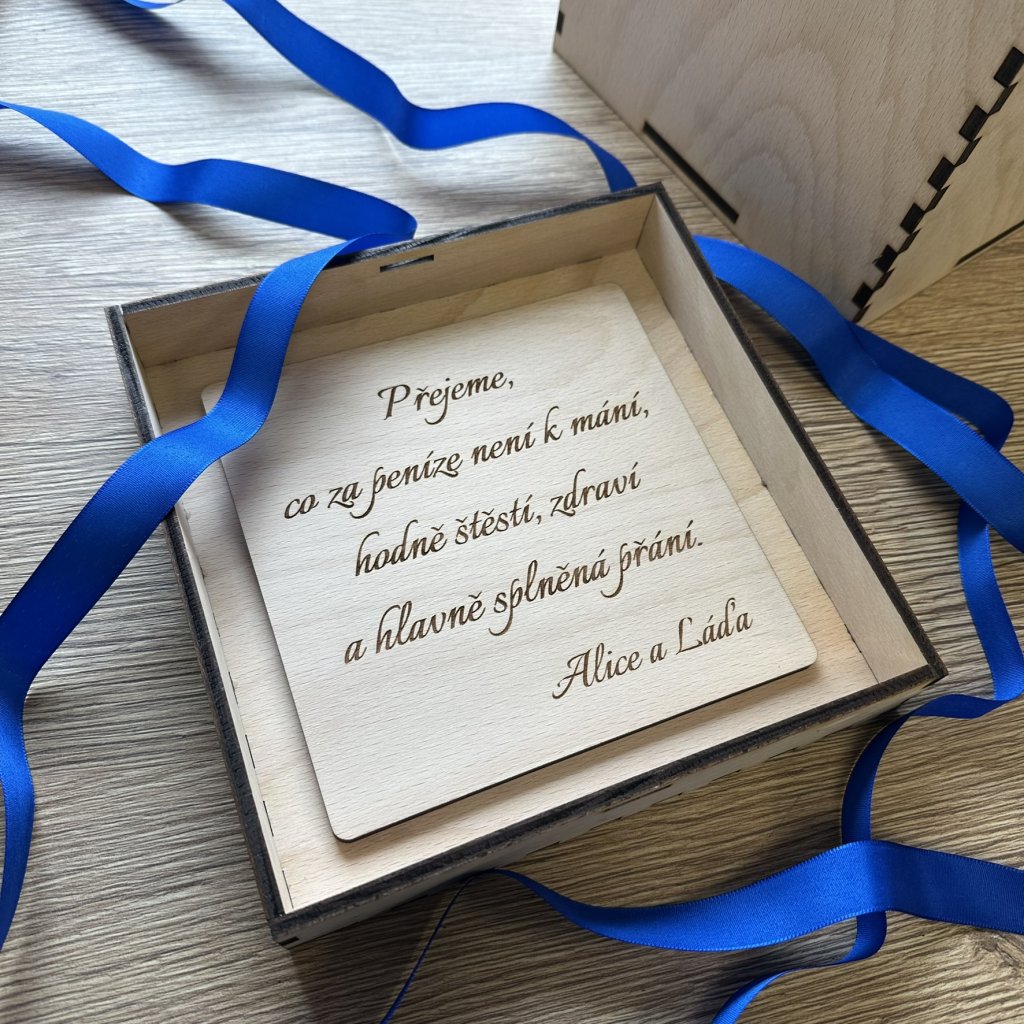 Přejeme,
co za peníze není k mání,
hodně štěstí, zdraví
a hlavně splněná přání.
Alice a Láďa